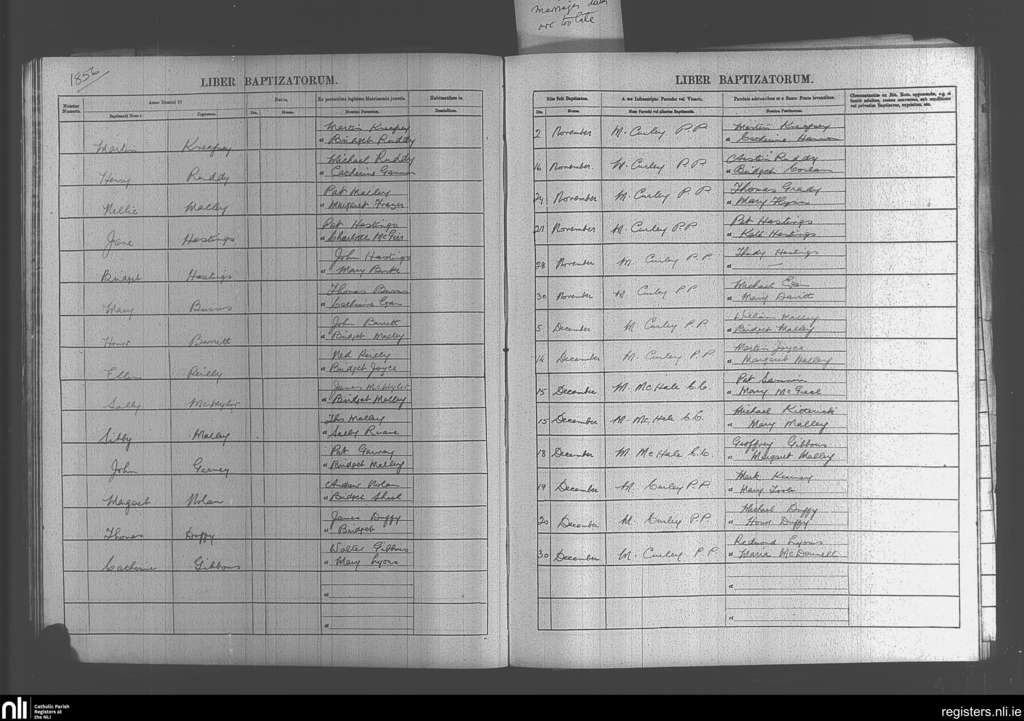 marriages
are too late
1856
LIBER BAPTIZATORUM.
Anno Domini 18
Natus,
Ex praesentium legitimo Matrimonio junctis.
Habitantibus in
Baptizandi Nomen.
Cognomen.
Die.
Mense.
Nomina Parentum.
Domicilium.
Martin
"Bridget Ruddy
Martin
Michael Ruddy
"Catherine Gannon
Henry Ruddy
Pat Malley
"Margaret
Nellie Malley
Pat Hastings
"Charlotte
Jane Hastings
John Hastings
"Mary Burke
Bridget Hastings
Thomas Burns
"Catherine Egan
Mary Burns
John Barrett
"Bridget Malley
Honor Barrett
Ned Reilly
"Bridget Joyce
Ellen Reilly
James McMyler
"Bridget Malley
Sally McMyler
Ths Malley
"Sally Ruane
Sibby Malley
Pat
"Bridget Malley
John
Andrew Nolan
"Bridget
Margaret Nolan
James Duffy
"Bridget
Thomas Duffy
Walter Gibbons
"Mary Lyons
Catherine Gibbons
"
"
LIBER BAPTIZATORUM.
Rite fuit Baptizatus.
A me Infrascripto Parocho vel Vicario.
Parentis adstantibus et e Sacro Fonte levantibus.
Die.
Mense.
Nomen Parochi vel alterius Baptizantis.
Nomina Patrinorum.
2 November M. Curley P.P. Martin
"Catherine Hannon
16 November. M. Curley P.P. Austin Ruddy
"Bridget
24 November M. Curley P.P. Thomas Grady
"Mary Flynn
27 November M. Curley P.P. Pat Hastings
"Kate Hastings
28 November M. Curley P.P. Thady Hastings
"
30 November M Curley P.P. Michael Egan
"Mary Davitt
5 December M Curley P.P. William Malley
"Bridget Malley
14 December M. Curley P.P. Martin Joyce
"Margaret Malley
15 December M. McHale C.C. Pat
"Mary
15 December M. McHale C.C. Michael
"Mary Malley
18 December M. McHale C.C. Geoffrey Gibbons
"Margaret Malley
19 December M. Curley P.P. Mark
"Mary
20 December M. Curley P.P. Michael Duffy
"Honor Duffy
30 December M. Curley P.P. Redmond Lyons
"Maria McDonnell
"
"
nli
Catholic Parish
Registers at
the NLI
registers.nli.ie